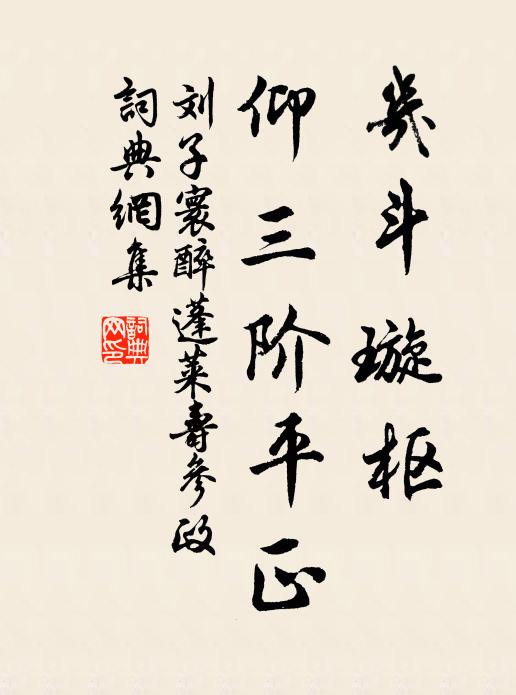 几斗璇枢
仰三阶平正
刘子寰醉蓬莱寿参政
词典網集
詞典网印